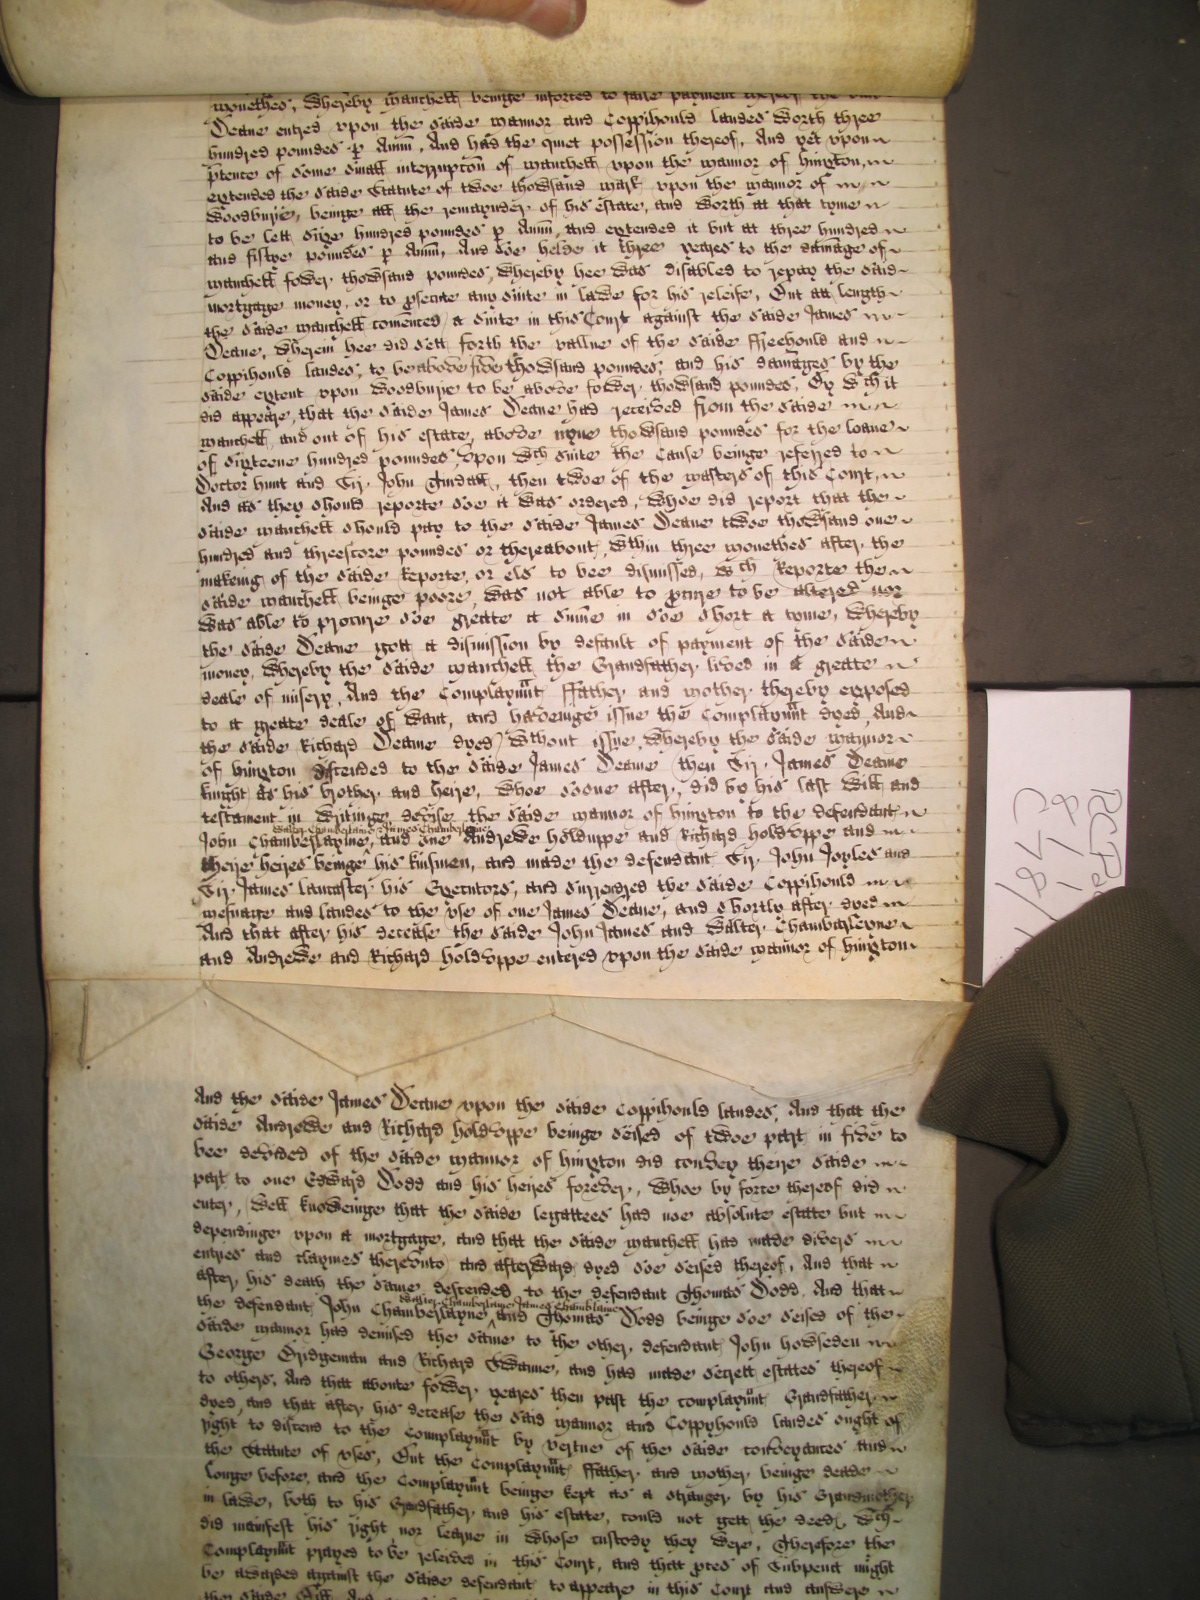 monethes, Whereby Manchell beinge inforced to faile payment thereof the said
Deane entred vpon the saide mannor and Coppihould landes worth three
hundred poundes p Annu, And had the quiet possession thereof, And yet vpon
ptence of some small interrupcon of Manchell vpon the mannor of hington,
extended the saide Statute of twoe thowsand mark vpon the mannor of
Woodburie, beinge all the remaynder of his estate, and worth at that tyme
to be lett sixe hundred poundes p Annu, and extended it but at three hundred
and fiftye poundes p Annu, And soe helde it three yeares to the damage of
Manchell fower thowsand poundes, Whereby hee was disabled to repay the said
mortgage money, or to psecute any suite in lawe for his releife, But att length
the saide Manchell comenced a suite in this Court against the saide James
Deane, wherein hee did sett forth the vallue of the saide ffreehould and
Coppihould landes, to be above five thowsand poundes, and his damages by the
saide extent vpon Woodburie to be above fower thowsand poundes, By wch it
did appeare, that the saide James Deane had received from the saide
Manchell, and out of his estate, above nyne thowsand poundes for the loane
of sixteene hundred poundes, Vpon wch suite the Cause beinge referred to
Doctor Hunt and Sir John Tindall, then twoe of the masters of this Court,
And as they should reporte soe it was ordered, Whoe did report that the
saide Manchell should pay to the saide James Deane twoe thowsand one
hundred and threescore poundes or thereabout, wthin three monethes after the
makeing of the saide Reporte, or els to bee dismissed, wch Reporte the
saide Manchell beinge poore, was not able to pcure to be altered nor
was able to procure soe greate a sume in soe short a tyme, Whereby
the saide Deane gott a dismission by default of payment of the saide
money, Whereby the saide Manchell the Grandfather lived in a greate
deale of misery, And the Complaynnt ffather and mother thereby exposed
to a greate deale of want, and haveinge issue the Complaynnt dyed, And
the saide Richard Deane dyed wthout issue, whereby the saide mannor
of hington descended to the saide James Deane then Sir James Deane
knight as his brother and heire, Whoe soone after, did by his last will and
testament in writinge devise the saide mannor of hington to the defendant
Walter Chamberlaine James Chamberlaine
John Chamberlayne, and one Andrewe holduppe and Richard holduppe and
theire heires beinge his kinsmen, and made the defendant Sir John Joyles and
Sir James lancaster his Executors, and surrendred the saide Coppihould
mesuage and landes to the vse of one James Deane, and shortly after dyed
And that after his decease the saide John James and Walter Chamberleyne
and Andrewe and Richard holduppe entered vpon the saide mannor of hington
And the saide James Deane vpon the saide Coppihould landes, And that the
saide Andrewe and Richard holduppe beinge seised of twoe part in five to
bee devided of the saide mannor of hington did convey theire saide
part to one Edward Dodd and his heires forever, Whoe by force thereof did
enter, well knoweinge that the saide legattees had noe absolute estate but
dependinge vpon a mortgage, and that the saide Manchell had made divers
entries and claymes therevnto and afterward dyed soe seised thereof, And that
after his death the same descended to the defendant Thomas Dodd. And that
Walter Chamberlaine James Chamblaine
the defendant John Chamberlayne and Thomas Dodd beinge soe seised of the
saide mannor had demised the same to the other defendant John howseden
George Bridgeman and Richard Swanne, and had made secrett estates thereof
to others, And that aboute fower yeares then past the complaynnt Grandfather
dyed, and that after his decease the said mannor and Coppyhould landes ought of
right to discend to the Complaynnt by vertue of the saide conveyances and
the Statute of vses, But the Complaynnt ffather and mother beinge deade
longe before, and the Complaynnt beinge kept as a stranger by his Grandmother
in lawe, both to his Grandfather and his estate, could not gett the deed, wch
did manifest his right nor learne in whose custody they were, Therefore the
Complaynnt prayed to be releived in this Court, and that pces of Subpena might
be awarded against the saide defendant to appeare in this Court and answere
the saide Bill, And
C78/1